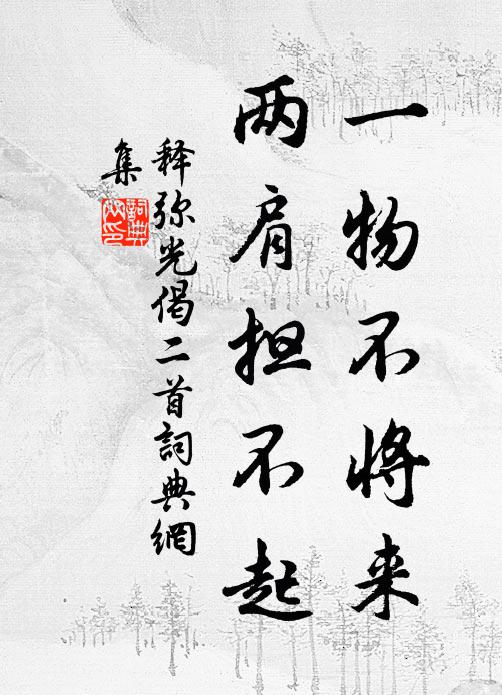 一物不将来
两肩担不起
释弥光偈二首詞典網
集